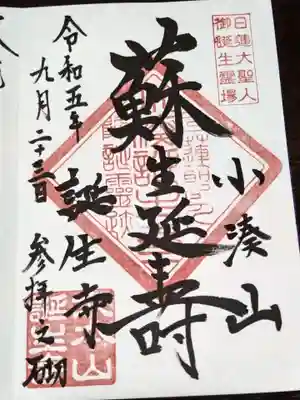 日蓮大聖人
御誕生霊場
小湊山
蘇生延壽
誕生寺
令和五年
九月二十三日 参拝之砌